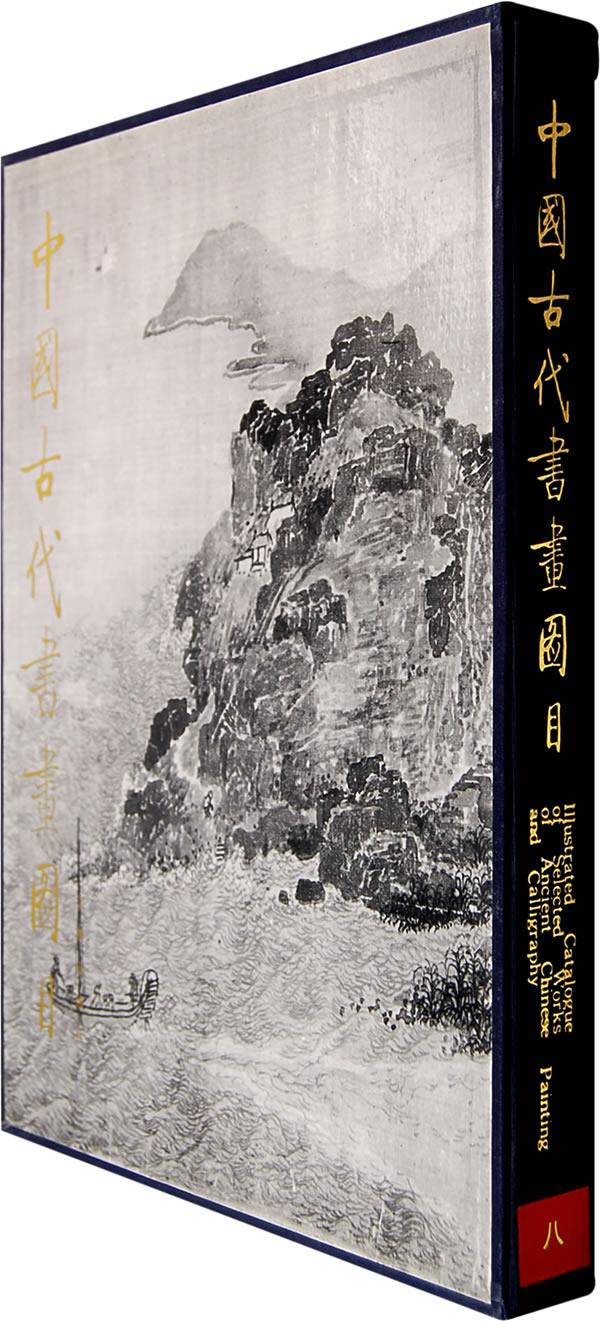 中國古代書畫圖目
中國古代書畫圖目
Illustrated Catalogue
of Selected Works
of Ancient Chinese Painting
and Calligraphy
八